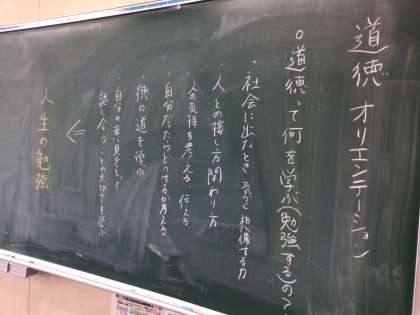 道徳 オリエンテーション
○道徳って何を学ぶ(勉強する)の?
・社会に出たとき 想像する力
・人との接し方 関わり方
人の気持ち考える、伝える
・自分だったらどうするか考える
・徳の道を学ぶ
・自分の意見をもって
話し合うことの大切さを学ぶ
⇐
人生の勉強